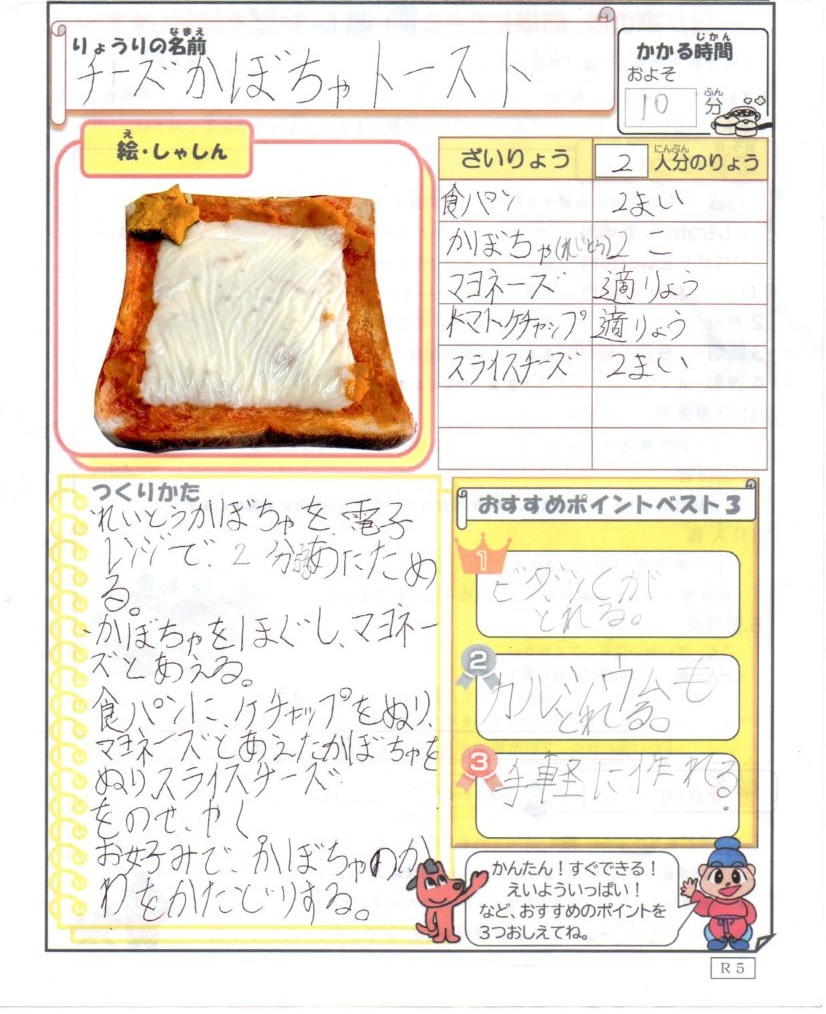 りょうりの名前
なまえ
チーズかぼちゃトースト
かかる時間
じかん
およそ
10分
ぷん
絵・しゃしん
え
ざいりょう 2 人分のりょう
にんぶん
食パン 2まい
かぼちゃ(れいとう) 2こ
マヨネーズ 適りょう
トマトケチャップ 適りょう
スライスチーズ 2まい
つくりかた
れいとうかぼちゃを、電子
レンジで、2分あたため
る。
かぼちゃをほぐし、マヨネー
ズとあえる。
食パンに、ケチャップをぬり、
マヨネーズとあえたかぼちゃを
ぬり、スライスチーズ
をのせ、やく。
お好みで、かぼちゃのか
わをかたどりする。
おすすめポイントベスト3
1
ビタミンCが
とれる。
2
カルシウムも
とれる。
3
手軽に作れる。
かんたん!すぐできる!
えいよういっぱい!
など、おすすめのポイントを
3つおしえてね。
R5